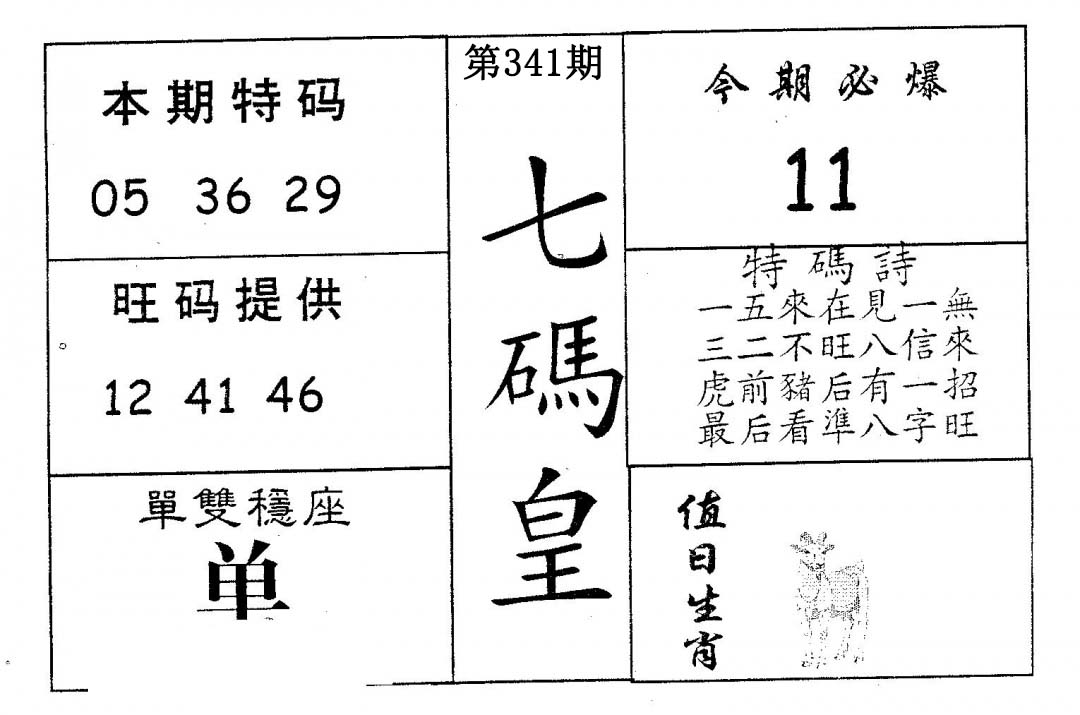 本期特码
05 36 29
旺码提供
12 41 46
單雙穩座
单
第341期
七碼皇
今期必爆
11
特碼詩
一五來在見一無
三二不旺八信來
虎前豬后有一招
最后看準八字旺
值日生肖